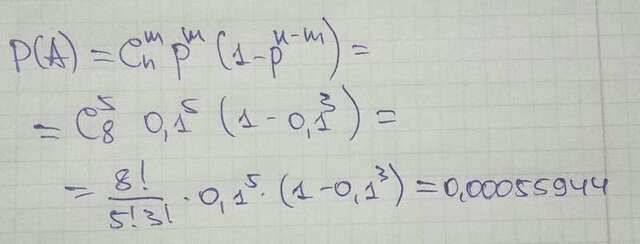 P(A) = Cₙᵐ pᵐ (1-pⁿ⁻ᵐ) =
= C₈⁵ 0,1⁵ (1 - 0,1³) =
= 8!/5!3! · 0,1⁵ · (1-0,1³) = 0,00055944